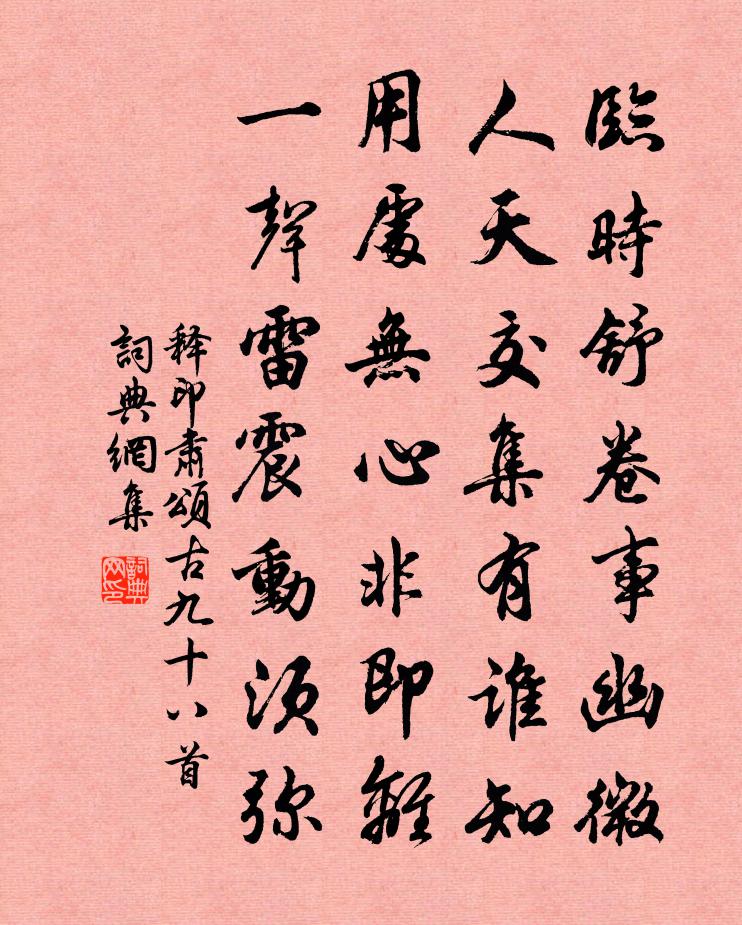 臨時舒卷事幽微
人天交集有誰知
用處無心非即離
一聲雷震動須弥
释印肅頌古九十八首
詞典網集
詞典网印